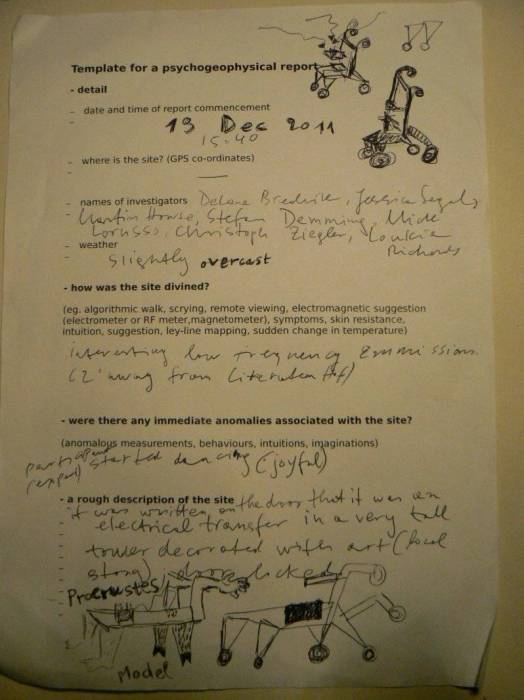 Template for a psychogeophysical report
- detail
– date and time of report commencement
13 Dec 2011
15.40
– where is the site? (GPS co-ordinates)
—
– names of investigators Delana Jessica
Martin Howse, Stefan Demming,
Christoph Ziegler, Loukia
– weather
Richards
slightly overcast
- how was the site divined?
(eg. algorithmic walk, scrying, remote viewing, electromagnetic suggestion
(electrometer or RF meter,magnetometer), symptoms, skin resistance,
intuition, suggestion, ley-line mapping, sudden change in temperature)
interesting low frequency Emmissions
(2' away from Literaten Hof)
- were there any immediate anomalies associated with the site?
(anomalous measurements, behaviours, intuitions, imaginations)
participant started dancing (joyful)
- a rough description of the site
it was written on the door that it was an
electrical transfer in a very tall
tower decorated with art (local
door locked
Procrustes
Model